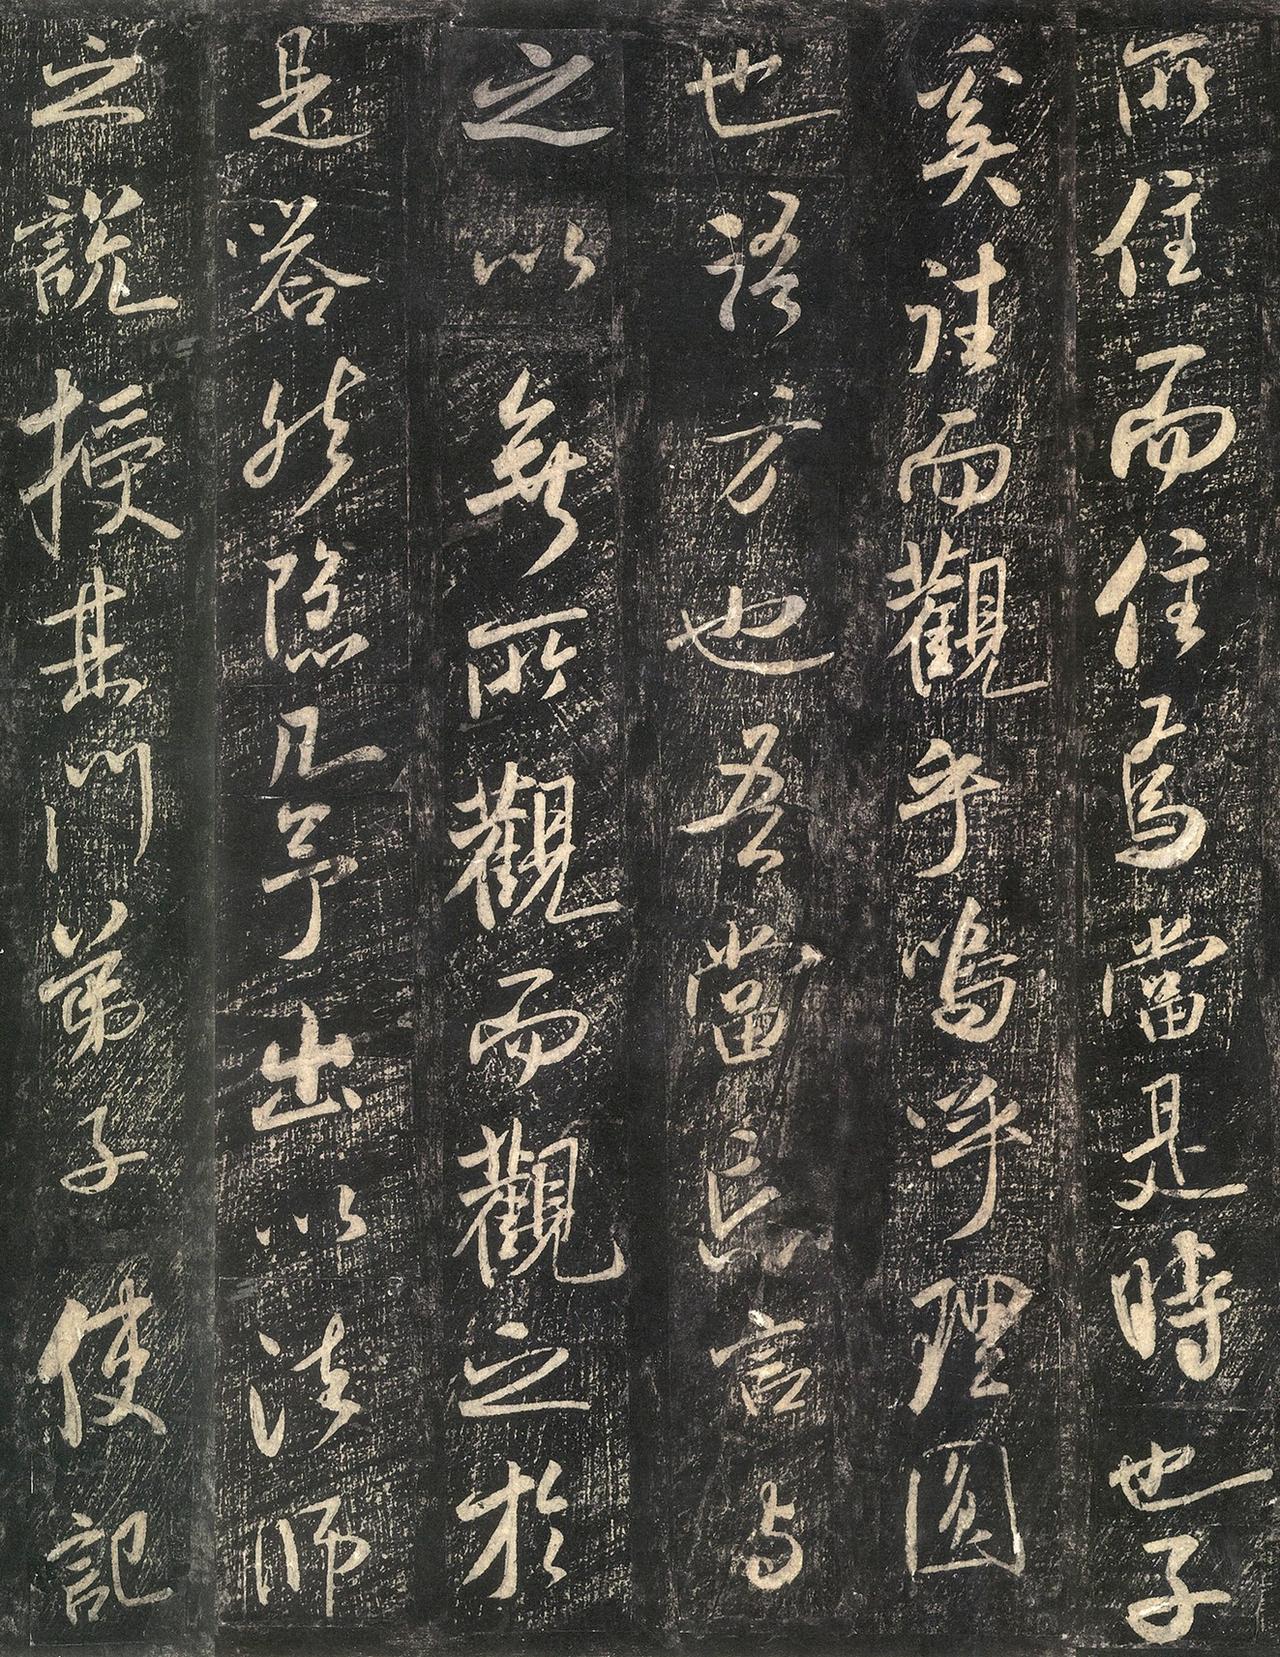 所住而住焉當是時也子
奚往而觀乎嗚呼理圓
也語方也吾當忘言与
之以無所觀而觀之於
是嗒然隐几予出以法師
之說授其門弟子使記